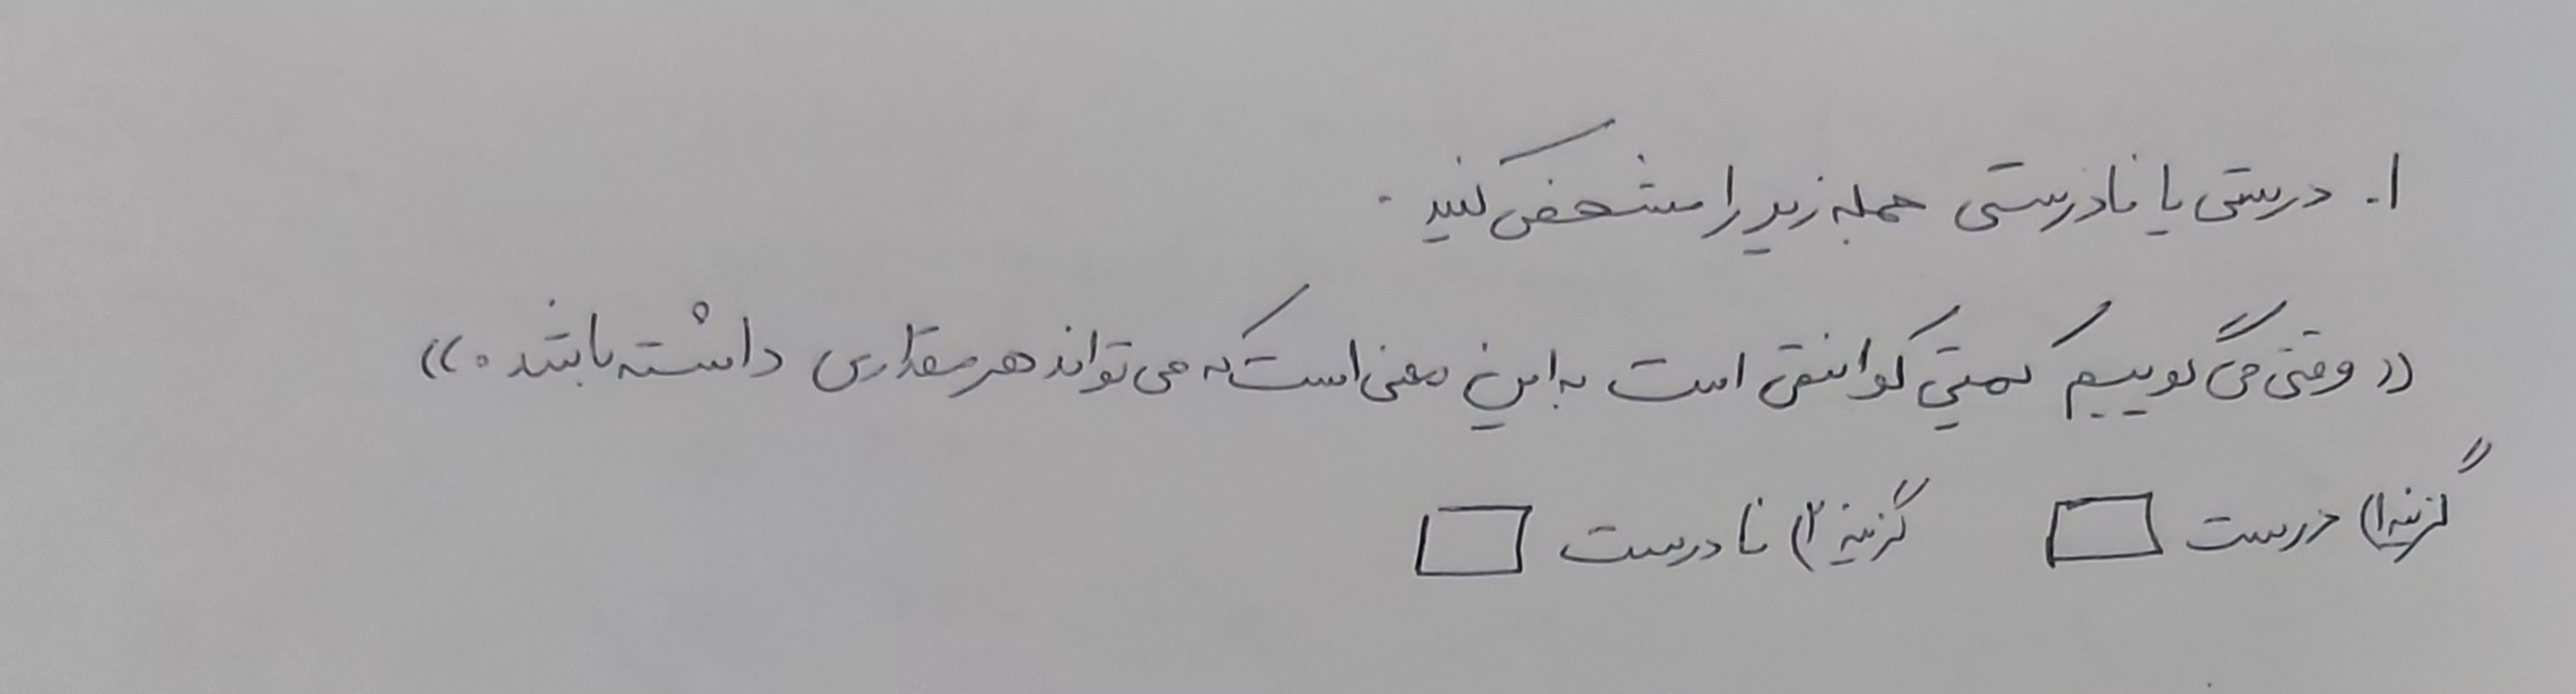 ۱. درستی یا نادرستی جمله زیر را مشخص کنید.
«وقتی می‌گوییم کمیتی کوانتقی است به این معنی است که می‌تواند هر مقداری داشته باشد.»
گزینه ۱) درست □ گزینه ۲) نادرست □